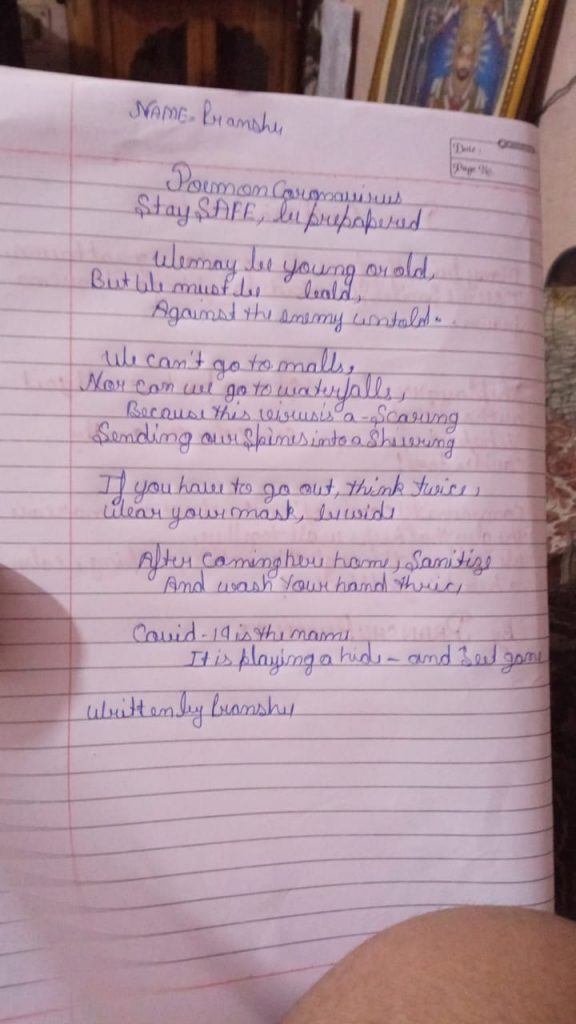 NAME- Pranshu
Date :
Page No.
Poem on Caronavirus
Stay SAFE, be prepapered
We may be young or old,
But We must be bold,
Against the enemy untold-.
We can't go to malls,
Nor can we go to waterfalls,
Because this virus is a - Scaring
Sending our Spines into a Shivering
If you have to go out, think twice,
Wear your mask, be wide
After coming here home, Sanitize
And wash Your hand thrice,
Covid-19 is the name
It is playing a hide - and Seek game
Written by Pranshu